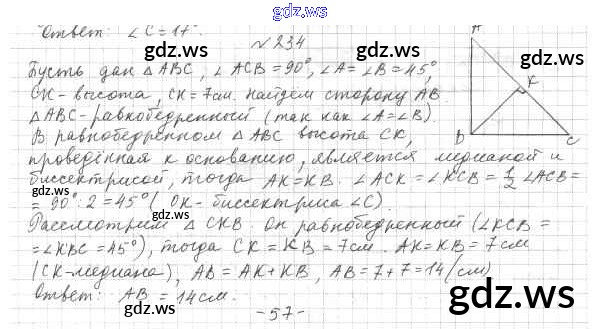 gdz.ws
Ответ: ∠C = 17°.
№ 234
Пусть дан △ABC, ∠ACB = 90°, ∠A = ∠B = 45°,
CK - высота, CK = 7см. Найдем сторону AB.
△ABC - равнобедренный (так как ∠A = ∠B).
В равнобедренном △ABC высота CK,
проведённая к основанию, является медианой и
биссектрисой, тогда AK = KB. ∠ACK = ∠KCB = 1/2 ∠ACB =
= 90° : 2 = 45° (CK - биссектриса ∠C).
Рассмотрим △CKB. Он равнобедренный (∠KCB =
= ∠KBC = 45°), тогда CK = KB = 7см. AK = KB = 7см
(CK - медиана), AB = AK + KB, AB = 7 + 7 = 14 (см)
Ответ: AB = 14см.
- 57 -
K
B
C
gdz.ws
gdz.ws
gdz.ws
gdz.ws
gdz.ws
gdz.ws
gdz.ws